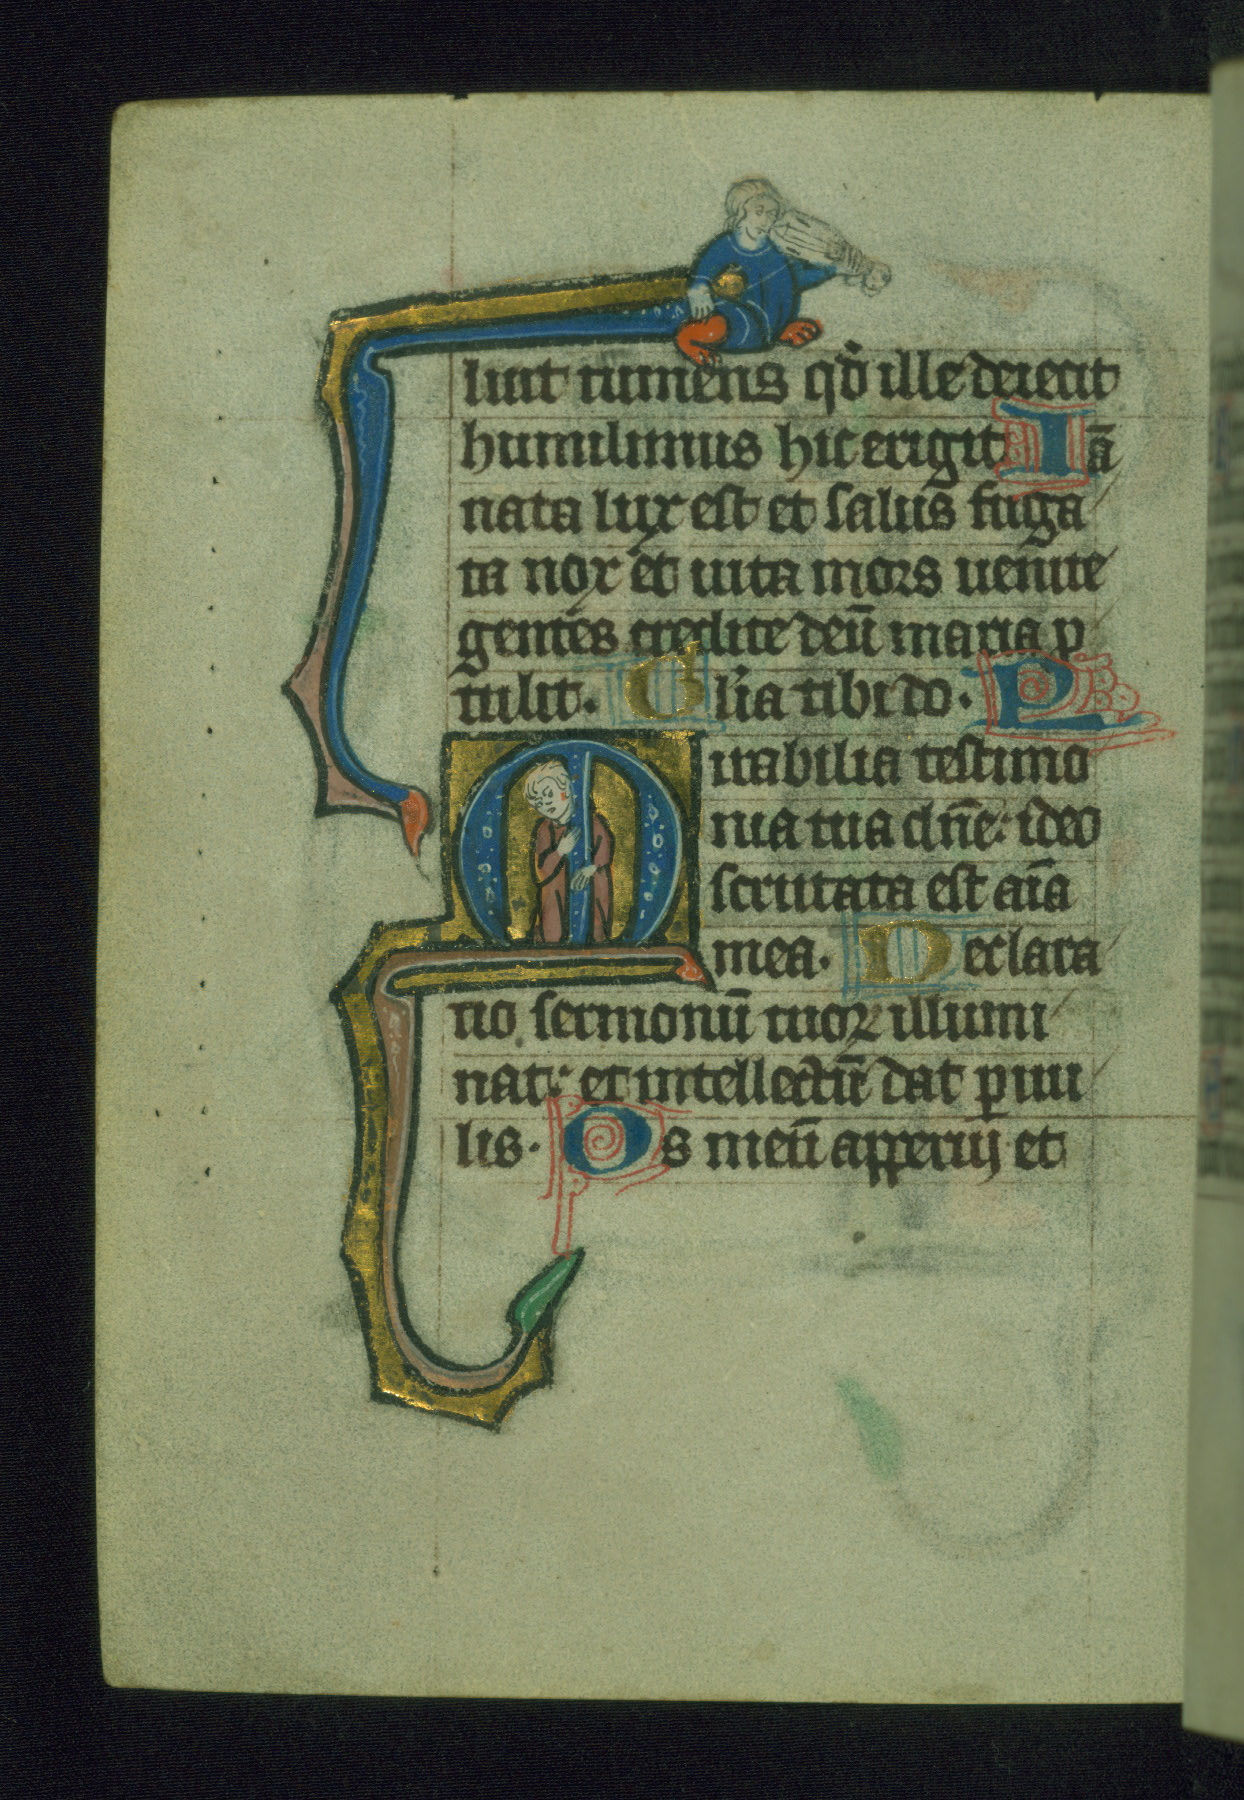 luit tumens qď ille deiecit
humilimus hic erigit Iā
nata lux est et salus fuga
ta nox et uita mors uenite
gentes credite deū maria ꝓ
tulit. Gl'ia tibi do. P
Mirabilia testimo
nia tua dn̄e: ideo
scrutata est aīa
mea. Declara
tio sermonū tuoꝝ illumi
nat: et intellectū dat ꝑuu
lis. Os meū apperuij et